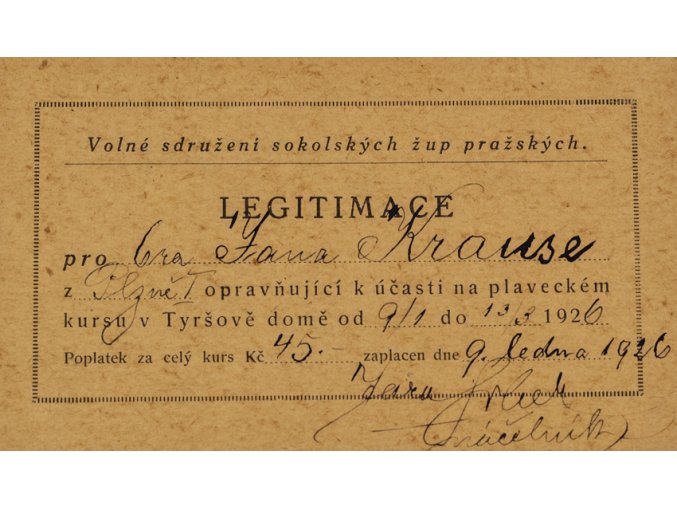 Volné sdružení sokolských žup pražských.
LEGITIMACE
pro bra Jana Krause
z Plzně I opravňující k účasti na plaveckém
kursu v Tyršově domě od 9/1 do 13/3 1926
Poplatek za celý kurs Kč 45.— zaplacen dne 9. ledna 1926
Jara
náčelník